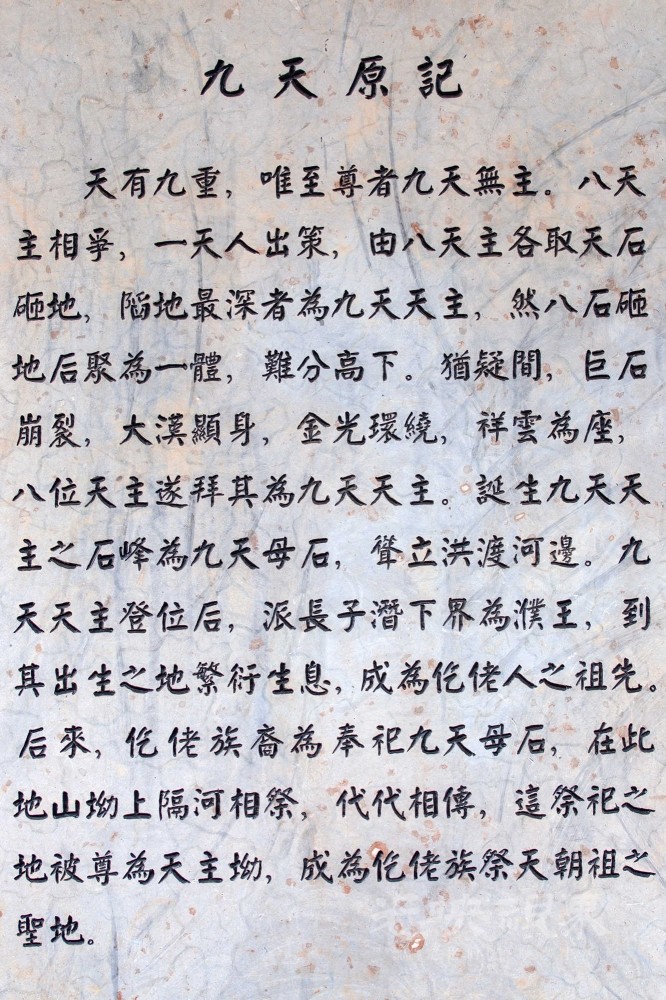 九天原記
天有九重，唯至尊者九天無主。八天
主相爭，一天人出策，由八天主各取天石
砸地，陷地最深者為九天天主，然八石砸
地后聚為一體，難分高下。猶疑間，巨石
崩裂，大漢顯身，金光環繞，祥雲為座，
八位天主遂拜其為九天天主。誕生九天天
主之石峰為九天母石，聳立洪渡河邊。九
天天主登位后，派長子潛下界為濮王，到
其出生之地繁衍生息，成為仡佬人之祖先。
后來，仡佬族裔為奉祀九天母石，在此
地山坳上隔河相祭，代代相傳，這祭祀之
地被尊為天主坳，成為仡佬族祭天朝祖之
聖地。